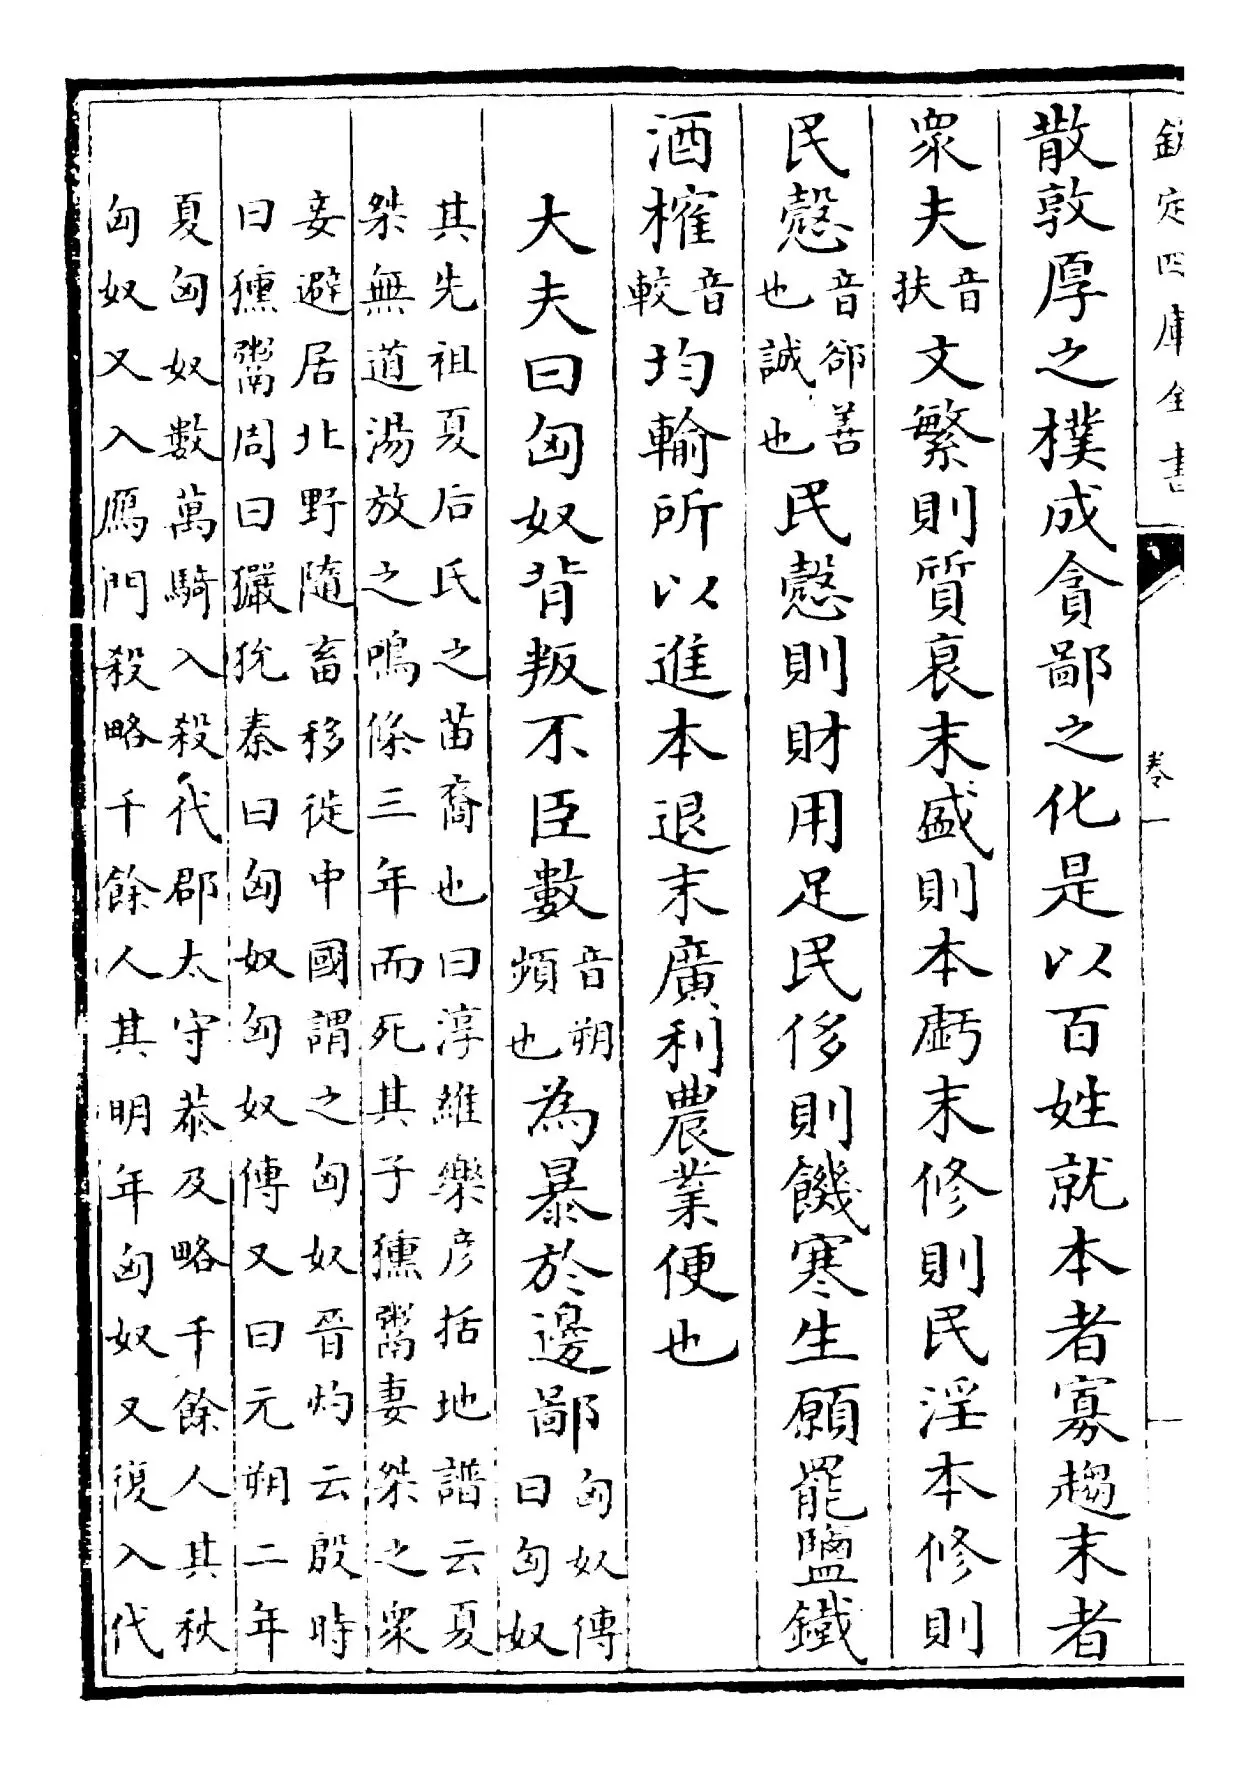 欽定四庫全書
卷一
散敦厚之樸成貪鄙之化是以百姓就本者寡趨末者
衆夫音扶文繁則質衰末盛則本虧末修則民淫本修則
民慤音郤善也誠也民慤則財用足民侈則饑寒生願罷鹽鐵
酒榷音較均輸所以進本退末廣利農業便也
大夫曰匈奴背叛不臣數音朔頻也為暴於邊鄙匈奴傳曰匈奴
其先祖夏后氏之苗裔也曰淳維樂彦括地譜云夏
桀無道湯放之鳴條三年而死其子獯鬻妻桀之衆
妾避居北野隨畜移徙中國謂之匈奴晉灼云殷時
曰獯鬻周曰玁狁秦曰匈奴匈奴傳又曰元朔二年
夏匈奴數萬騎入殺代郡太守恭及略千餘人其秋
匈奴又入鴈門殺略千餘人其明年匈奴又復入代